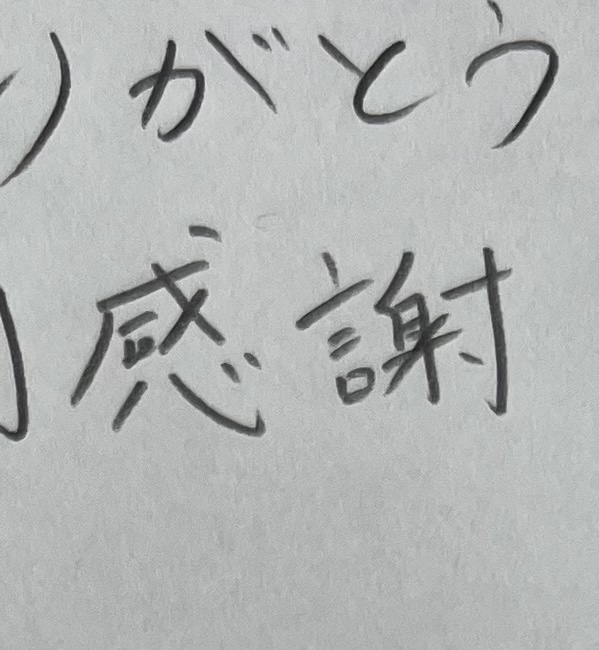 りがとう
感謝